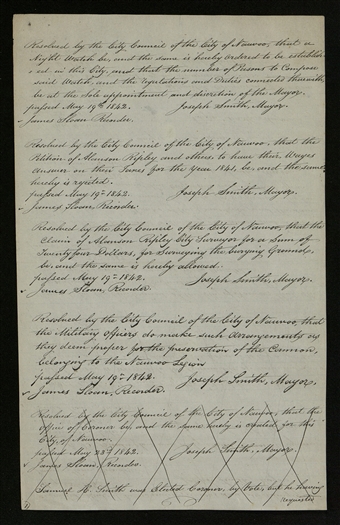 Resolved by the City Council of the City of Nauvoo, that a
Night Watch be, and the same is hereby ordered to be establish-
ed in this City, and that the number of Persons to Compose
said Watch, and the regulations and Duties connected therewith
be at the sole appointment and discretion of the Mayor.
passed May 19th 1842. Joseph Smith, Mayor.
James Sloan, Recorder.
Resolved by the City Council of the City of Nauvoo, that the
Petition of Alanson Ripley and others to have their Wages
answer on their Taxes for the Year 1841, be, and the same
hereby is rejected.
passed May 19th 1842. Joseph Smith, Mayor.
James Sloan, Recorder.
Resolved by the City Council of the City of Nauvoo, that the
Claim of Alanson Ripley City Surveyor for a Sum of
Twenty four Dollars, for Surveying the Burying Ground,
be, and the same is hereby allowed.
passed May 19th 1842. Joseph Smith, Mayor.
James Sloan, Recorder.
Resolved by the City Council of the City of Nauvoo, that
the Military officers do make such Arrangements as
they deem proper for the preservation of the Cannon,
belonging to the Nauvoo Legion
passed May 19th 1842. Joseph Smith, Mayor.
James Sloan, Recorder.
Resolved by the City Council of the City of Nauvoo, that the
office of Coroner be, and the same hereby is created for this
City, of Nauvoo.
passed May 28th 1842. Joseph Smith, Mayor.
James Sloan, Recorder
Samuel H. Smith was Elected Coroner, by Vote, but he having
requested